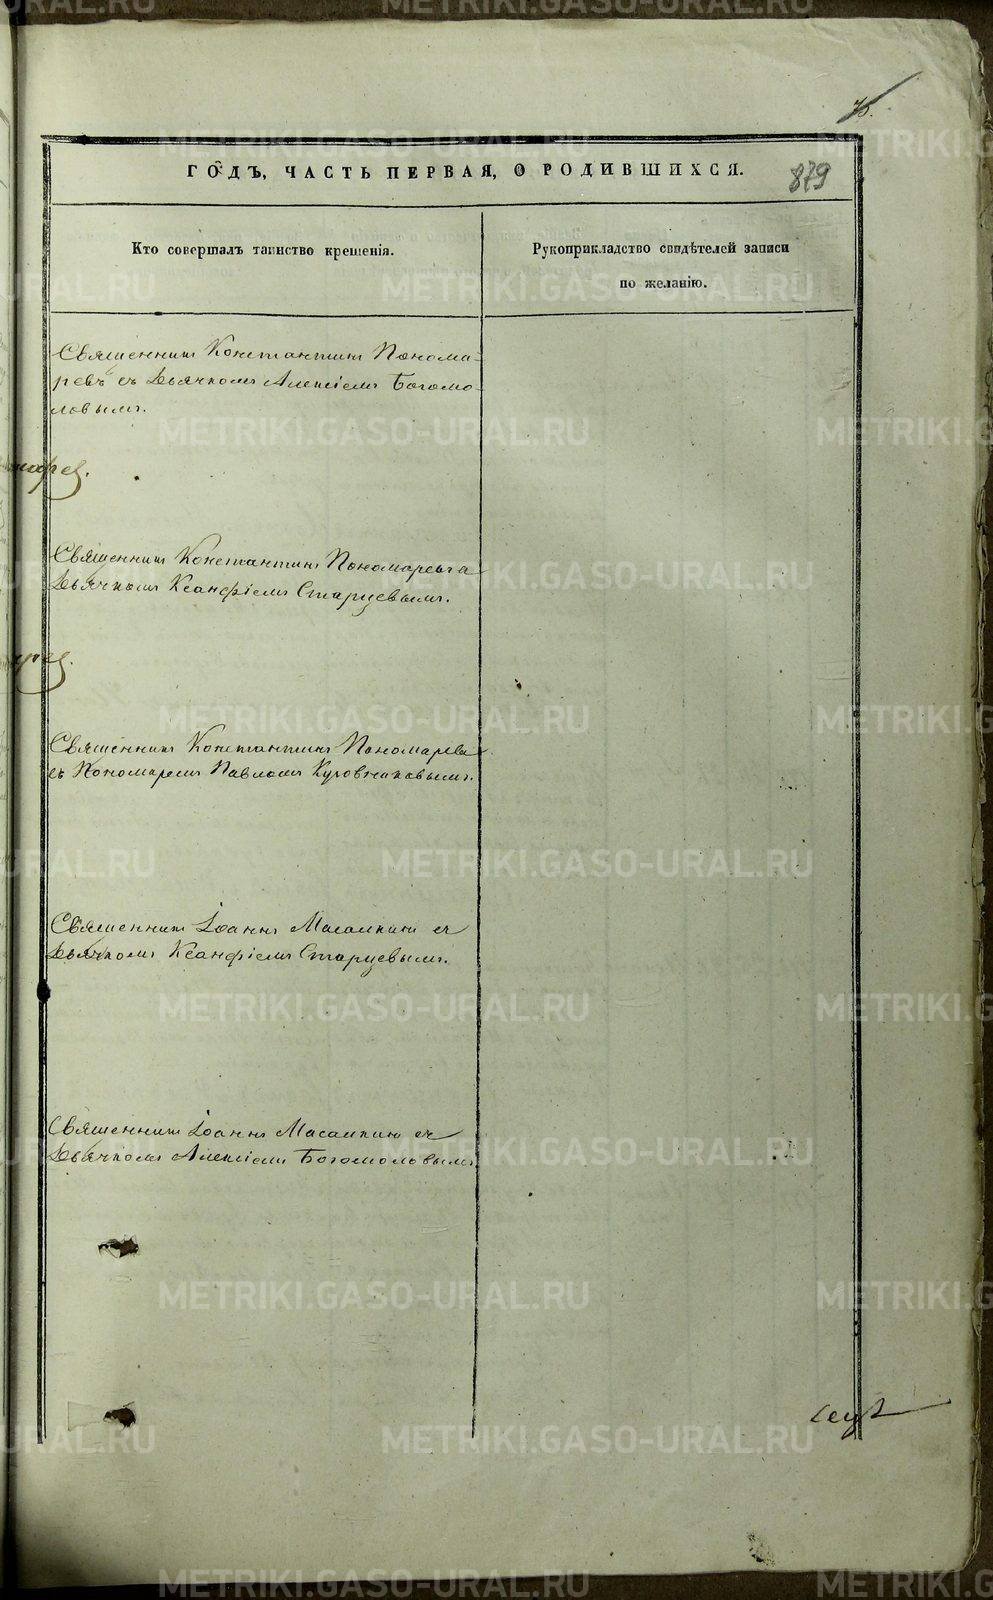 75.
879
ГОДЪ, ЧАСТЬ ПЕРВАЯ, О РОДИВШИХСЯ.
Кто совершалъ таинство крещенія.
Рукоприкладство свидѣтелей записи
по желанію.
Священникъ Константинъ Понома-
ревъ съ Дьячкомъ Алексіемъ Богомо-
ловымъ.
Священникъ Константинъ Пономаревъ съ
Дьячкомъ Ксанфіемъ Старцевымъ.
Священникъ Константинъ Пономаревъ
съ Пономаремъ Павломъ Куровниковымъ.
Священникъ Іоаннъ Масалкинъ съ
Дьячкомъ Ксанфіемъ Старцевымъ.
Священникъ Іоаннъ Масалкинъ съ
Дьячкомъ Алексіемъ Богомоловымъ.
METRIKI.GASO-URAL.RU